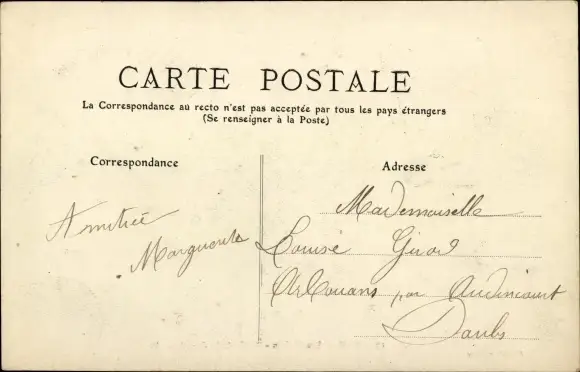 CARTE POSTALE
La Correspondance au recto n'est pas acceptée par tous les pays étrangers
(Se renseigner à la Poste)
Correspondance
Adresse
Amitiée
Marguerite
Mademoiselle
Louise Girod
Arbouans par Audincourt
Doubs